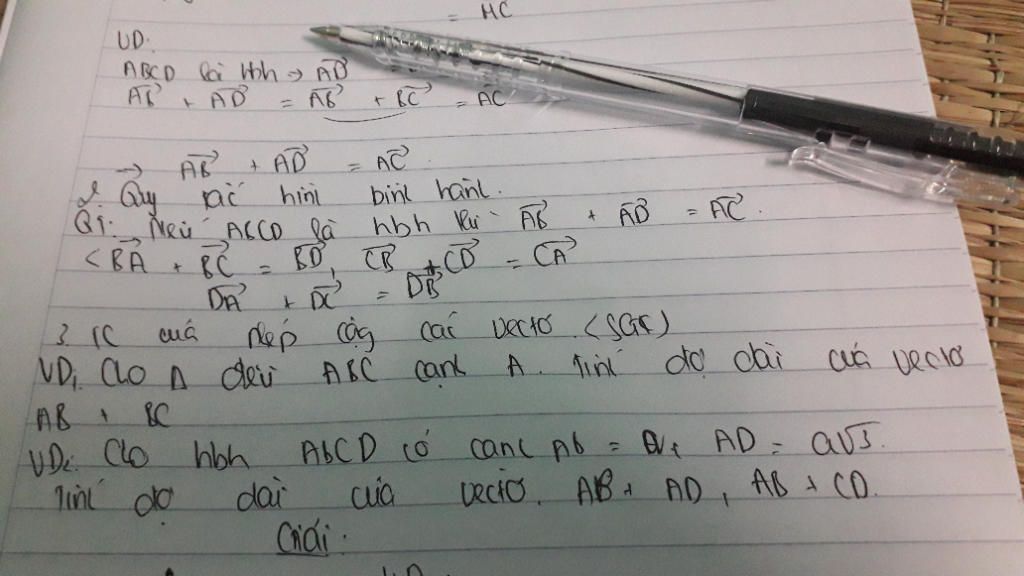 = AC
VD.
ABCD là hbh → AD
AB + AD = AB + BC = AC
→ AB + AD = AC.
2. Quy tắc hình bình hành.
QT: Nếu ABCD là hbh thì AB + AD = AC.
<BA + BC = BD, CB + CD = CA
DA + DC = DB
3 TC của phép cộng các vectơ (SGK)
VD1. Cho Δ đều ABC cạnh A. Tính độ dài của vectơ
AB + BC
VD2. Cho hbh ABCD có cạnh AB = AD = a√3.
Tính độ dài của vectơ. AB + AD, AB + CD.
Giải.